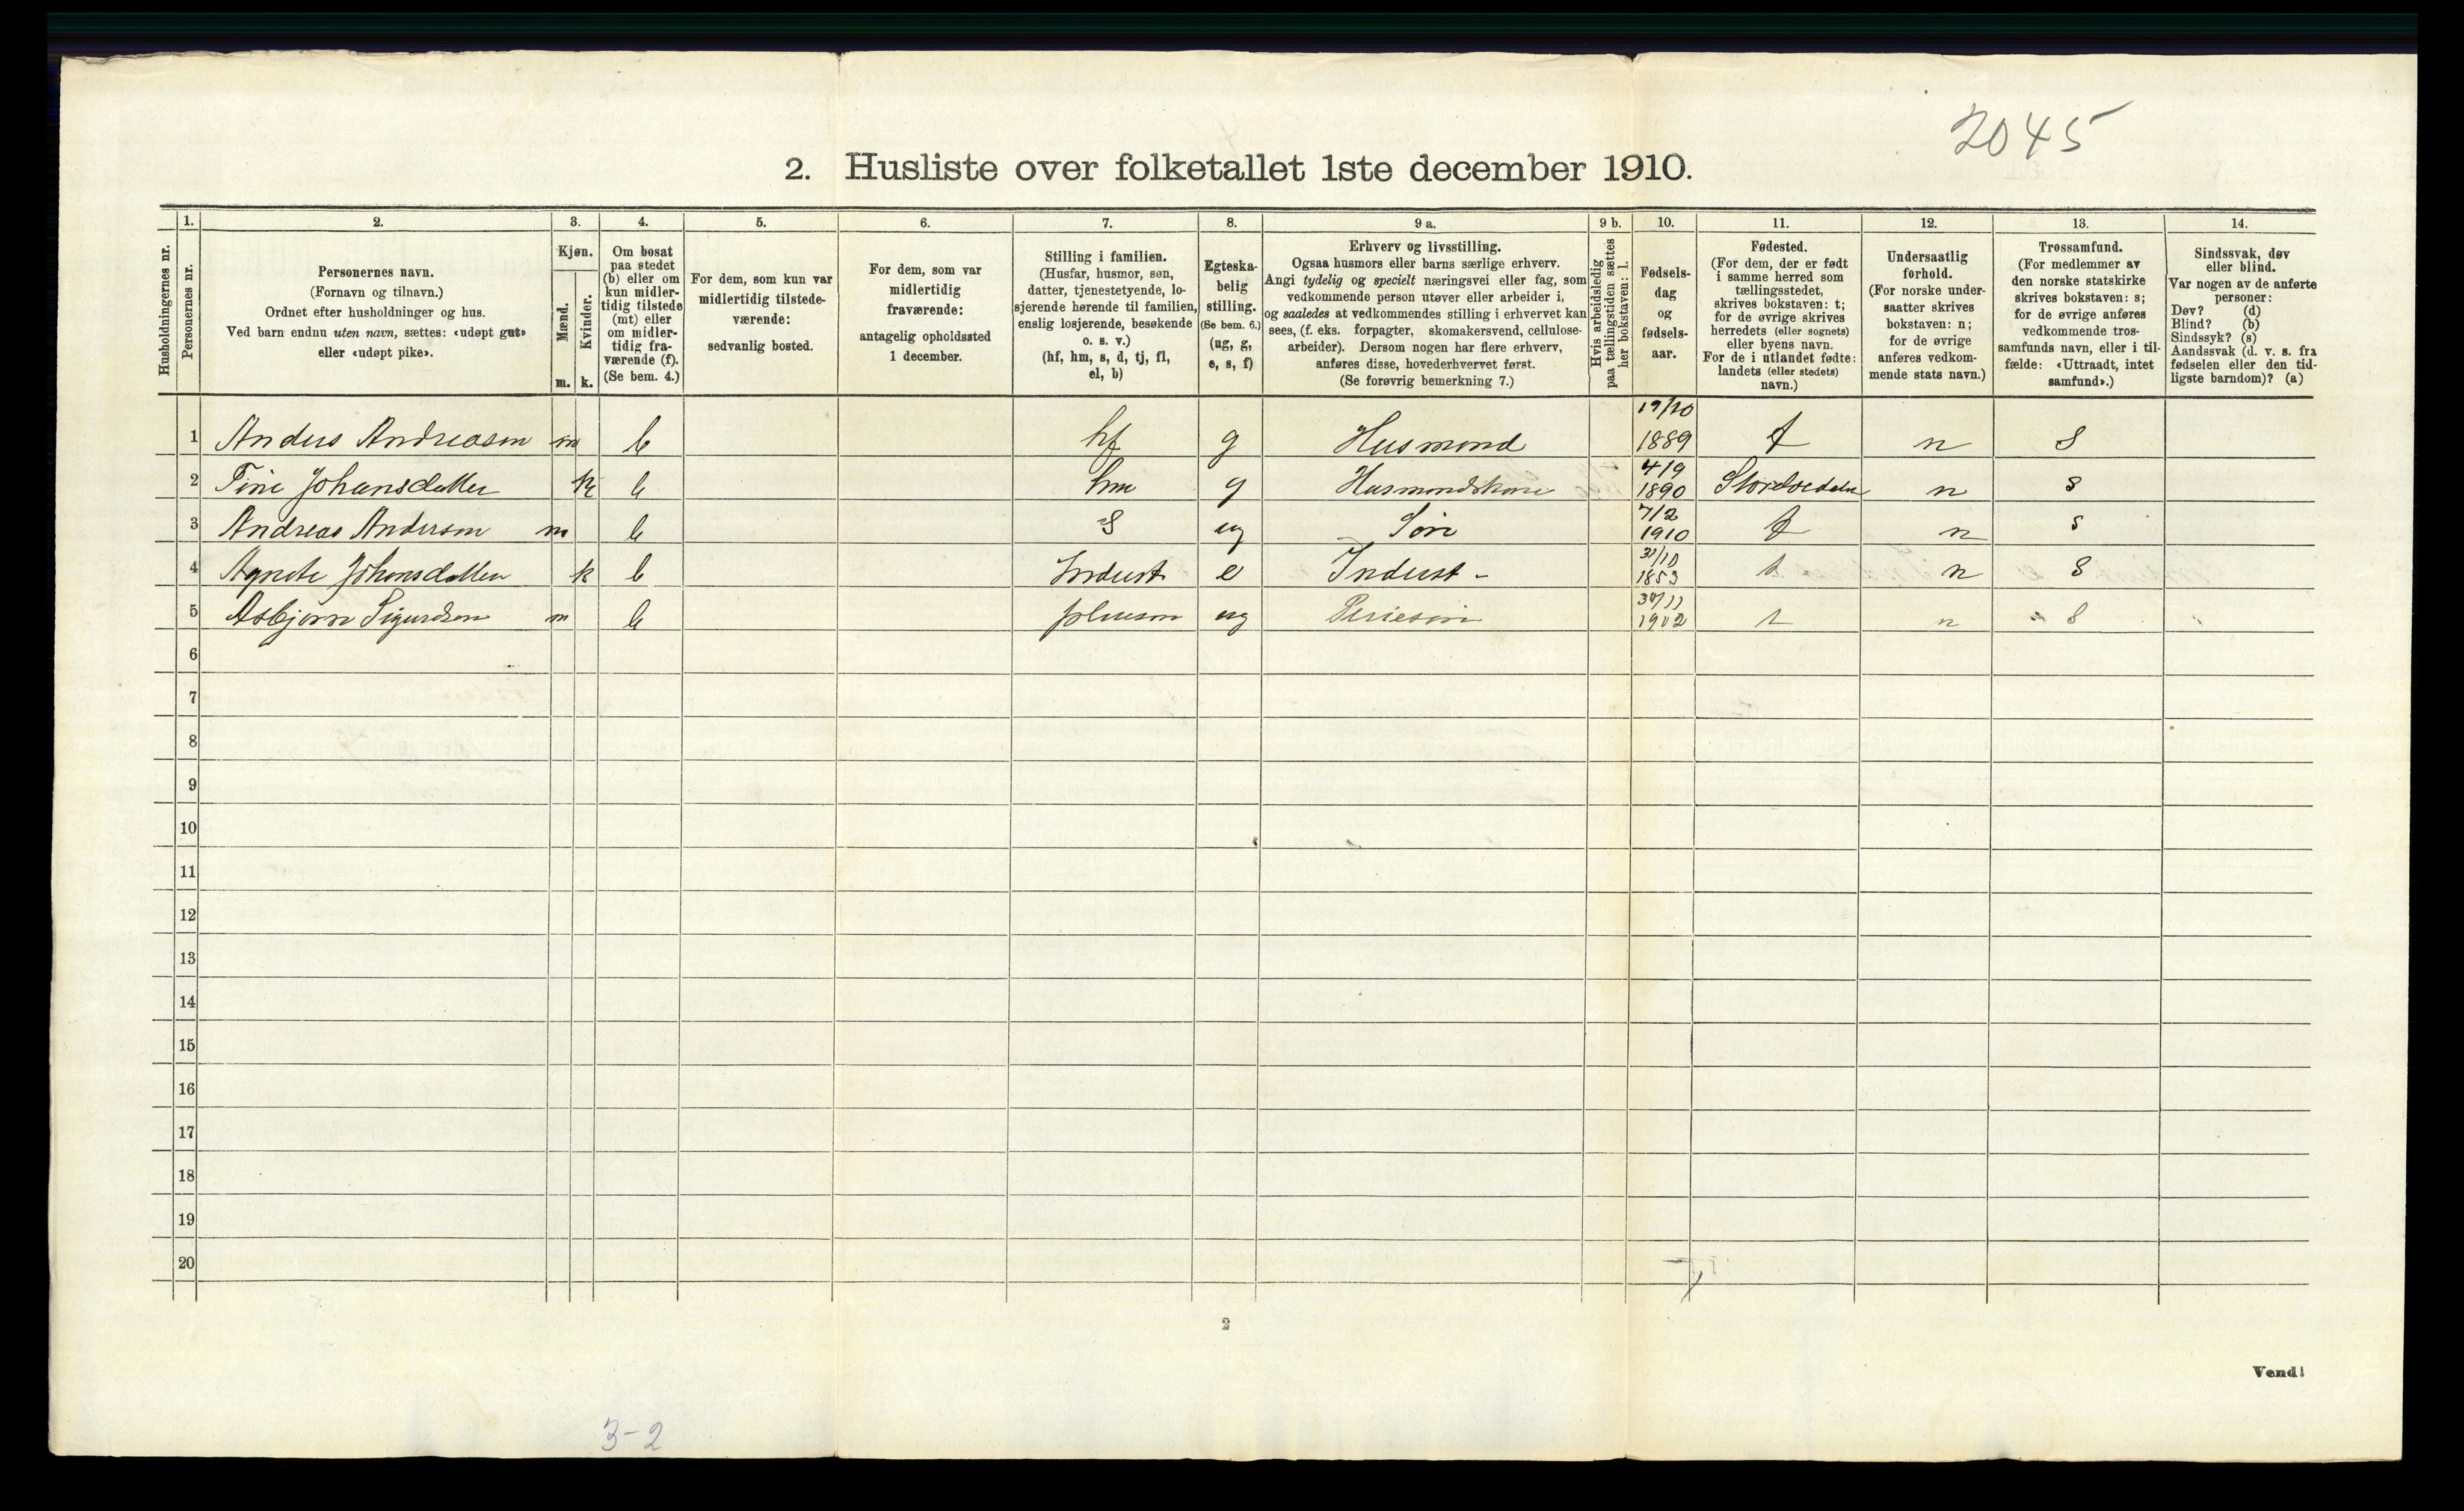 2045
2. Husliste over folketallet 1ste december 1910.
Husholdningernes nr.
1.
Personernes nr.
2.
Personernes navn.
(Fornavn og tilnavn.)
Ordnet efter husholdninger og hus.
Ved barn endnu uten navn, sættes: «udøpt gut»
eller «udøpt pike».
3.
Kjøn.
Mænd.
Kvinder.
m. k.
4.
Om bosat
paa stedet
(b) eller om
kun midler-
tidig tilstede
(mt) eller
om midler-
tidig fra-
værende (f).
(Se bem. 4.)
5.
For dem, som kun var
midlertidig tilstede-
værende:
sedvanlig bosted.
6.
For dem, som var
midlertidig
fraværende:
antagelig opholdssted
1 december.
7.
Stilling i familien.
(Husfar, husmor, søn,
datter, tjenestetyende, lo-
sjerende hørende til familien,
enslig losjerende, besøkende
o. s. v.)
(hf, hm, s, d, tj, fl,
el, b)
8.
Egteska-
belig
stilling.
(Se bem. 6.)
(ug, g,
e, s, f)
9 a.
Erhverv og livsstilling.
Ogsaa husmors eller barns særlige erhverv.
Angi tydelig og specielt næringsvei eller fag, som
vedkommende person utøver eller arbeider i,
og saaledes at vedkommendes stilling i erhvervet kan
sees, (f. eks. forpagter, skomakersvend, cellulose-
arbeider). Dersom nogen har flere erhverv,
anføres disse, hovederhvervet først.
(Se forøvrig bemerkning 7.)
9 b.
Hvis arbeidsledig
paa tællingstiden sættes
her bokstaven: l.
10.
Fødsels-
dag
og
fødsels-
aar.
11.
Fødested.
(For dem, der er født
i samme herred som
tællingsstedet,
skrives bokstaven: t;
for de øvrige skrives
herredets (eller sognets)
eller byens navn.
For de i utlandet fødte:
landets (eller stedets)
navn.)
12.
Undersaatlig
forhold.
(For norske under-
saatter skrives
bokstaven: n;
for de øvrige
anføres vedkom-
mende stats navn.)
13.
Trossamfund.
(For medlemmer av
den norske statskirke
skrives bokstaven: s;
for de øvrige anføres
vedkommende tros-
samfunds navn, eller i til-
fælde: «Uttraadt, intet
samfund».)
14.
Sindssvak, døv
eller blind.
Var nogen av de anførte
personer:
Døv? (d)
Blind? (b)
Sindssyk? (s)
Aandssvak (d. v. s. fra
fødselen eller den tid-
ligste barndom)? (a)
1 Anders Andreasen m b hf g Husmand 19/10 1889 t n S
2 Tine Johansdatter k b hm g Husmandskone 4/9 1890 n s
3 Andreas Andersen m b S ug Søn 7/2 1910 t n s
4 Agnete Johansdatter k b Inderst e Inderst - 31/10 1853 t n S
5 Asbjørn Sigurdsen m b pleieson ug Pleiesøn 30/11 1902 t n S
6
7
8
9
10
11
12
13
14
15
16
17
18
19
20
2
Vend!
3-2